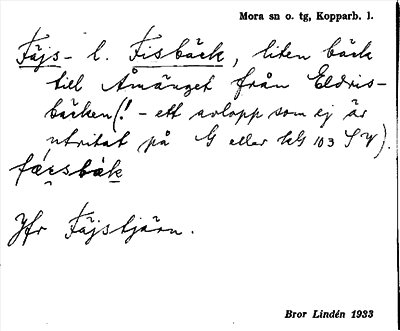 Mora sn o. tg, Kopparb. l.
Fäjs- l. Fisbäck, liten bäck
till Åmänget från Eldris-
bäcken (! - ett avlopp som ej är
utritat på G eller hG 103 SV).
fæɛsbàk
Jfr Fäjstjärn.
Bror Lindén 1933